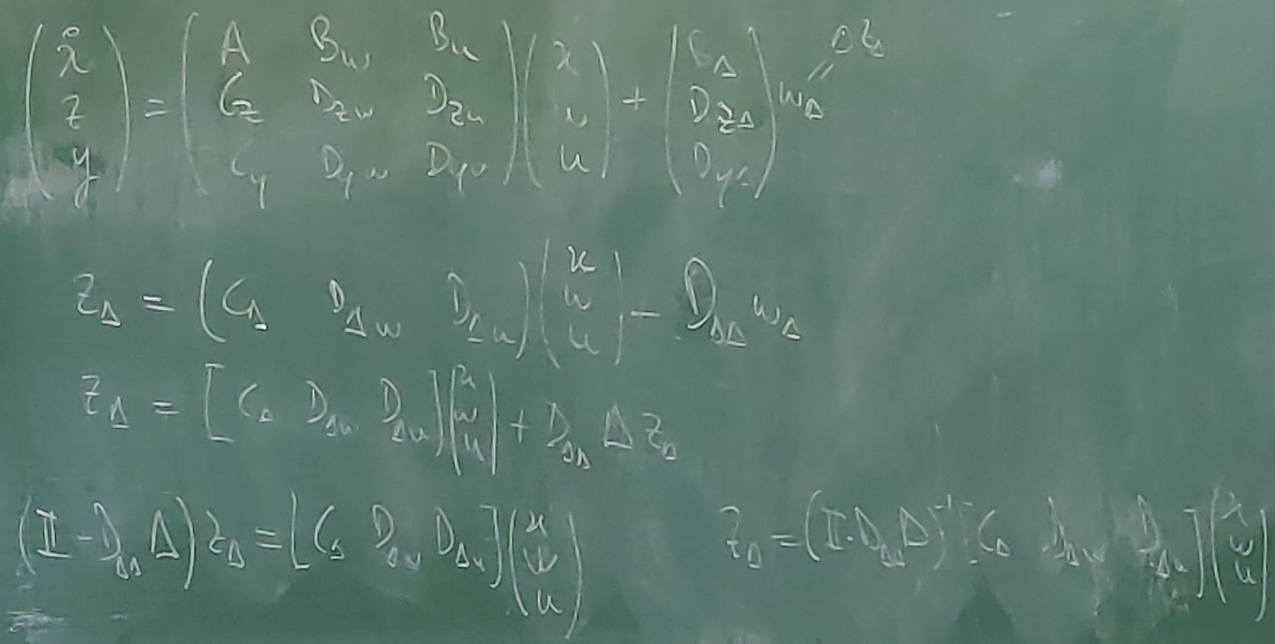 (ẋ z y) = (A B_w B_u C_z D_zw D_zu C_y D_yw D_yu) (x w u) + (B_Δ D_zΔ D_yΔ) w_Δ = Δ z_Δ
z_Δ = (C_Δ D_Δw D_Δu) (x w u) - D_ΔΔ w_Δ
z_Δ = [C_Δ D_Δw D_Δu] (x w u) + D_ΔΔ Δ z_Δ
(I - D_ΔΔ Δ) z_Δ = [C_Δ D_Δw D_Δu] (x w u)
z_Δ = (I - D_ΔΔ Δ)^-1 [C_Δ D_Δw D_Δu] (x w u)